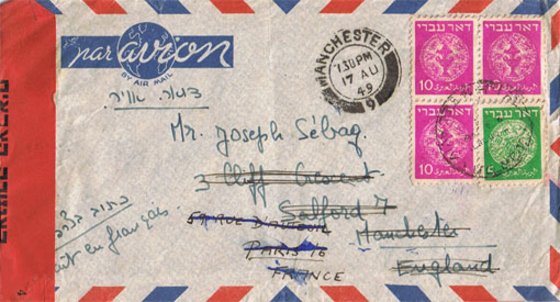 par avion
BY AIR MAIL
דאר עברי
דאר עברי
10
10
MANCHESTER
1 30 PM
17 AU
49
9
דאר עברי
דאר עברי
10
5
דואר אויר
Mr. Joseph Sébag
3 Cliff Crescent
Salford 7
59 RUE D'AUTEUIL
Manchester
PARIS 16
England
FRANCE
en français
4